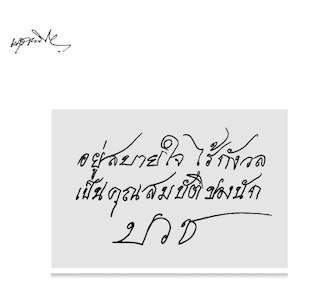 อยู่สบายใจ ไร้กังวล
เป็นคุณสมบัติของนัก
บวช